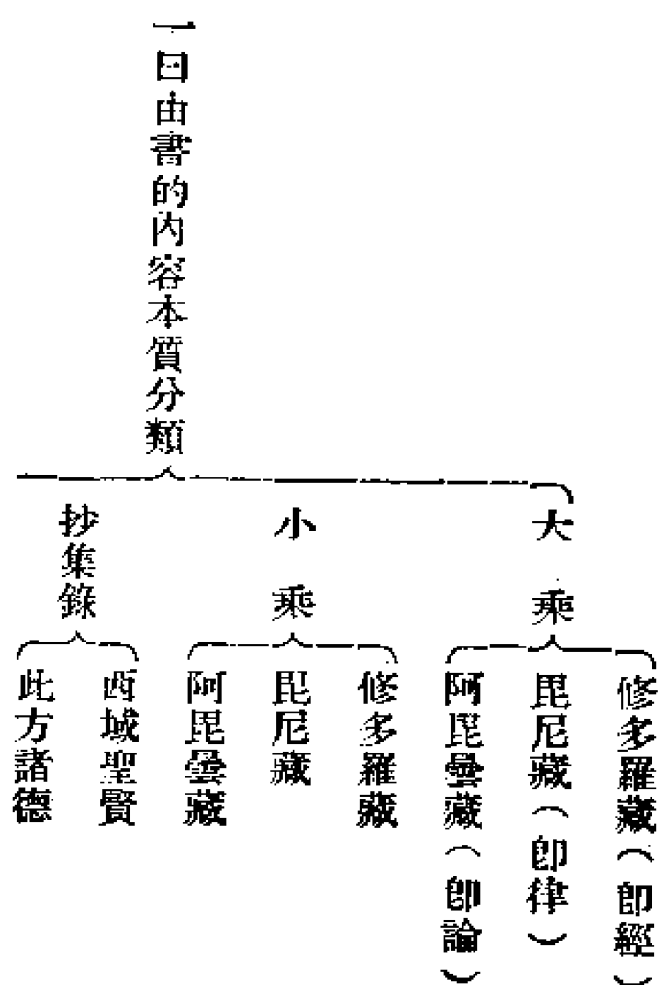 一曰由書的內容本質分類
大乘
修多羅藏（卽經）
毘尼藏（卽律）
阿毘曇藏（卽論）
小乘
修多羅藏
毘尼藏
阿毘曇藏
抄集錄
西域聖賢
此方諸德